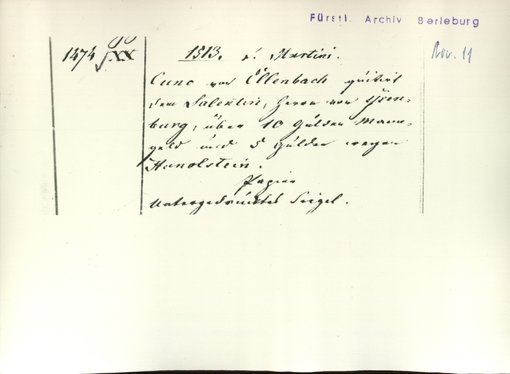 Fürstl. Archiv Berleburg
1474 1513. d. Martini. Nov. 11
Cuno von Ellenbach quitirt
dem Salentin, Herrn von Ysen-
burg, über 10 Gulden Mann-
geld und 5 Gulden wegen
Hunolstein.
Papier
Untergedrücktes Siegel.